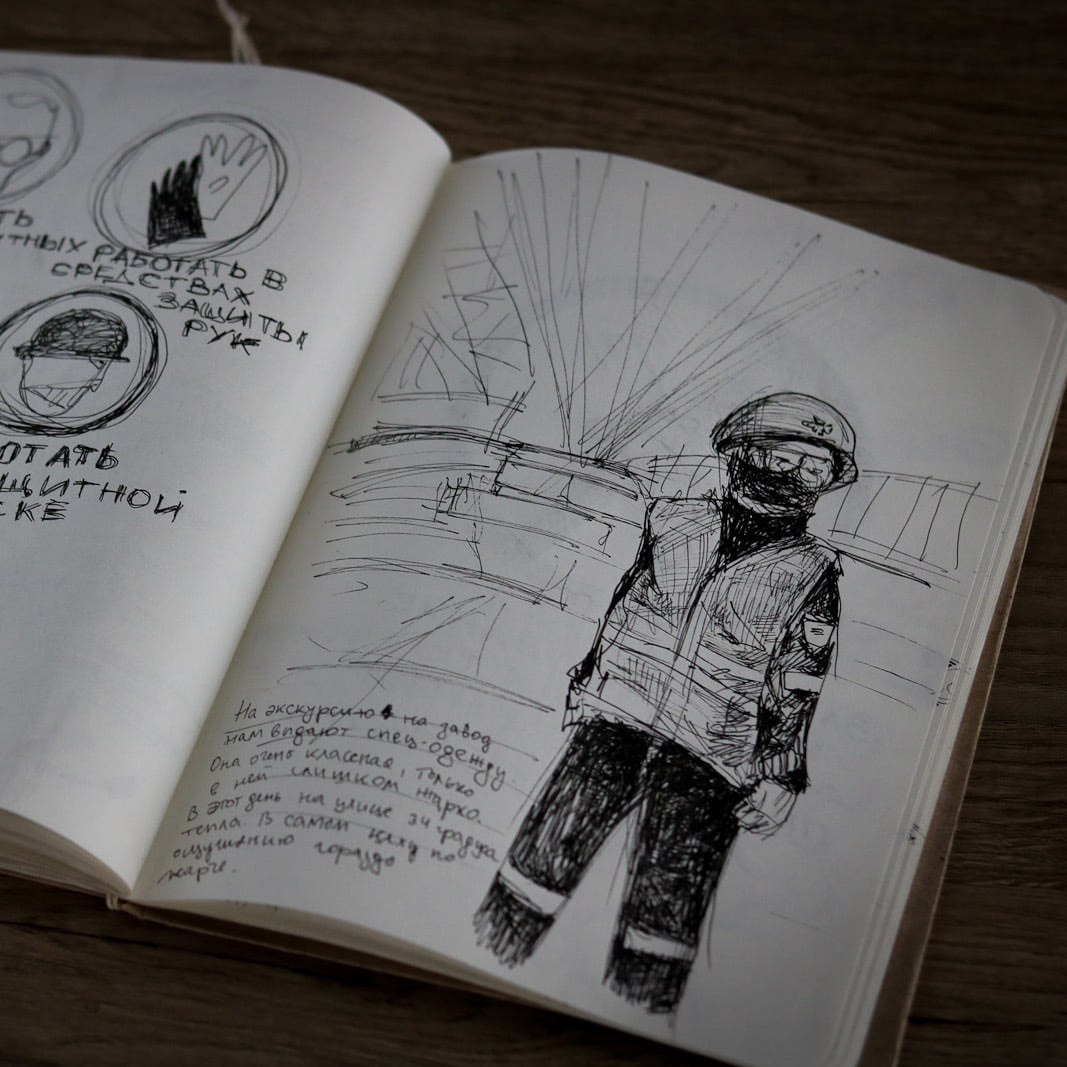 ТЬ
ТНЫХ
РАБОТАТЬ В
СРЕДСТВАХ
ЗАЩИТЫ
РУК
ОТАТЬ
ЩИТНОЙ
СКЕ
На экскурсию на завод
нам выдают спец-одежду.
Она очень классная, только
в ней слишком жарко.
В этот день на улице 34 градуса
тепла. В самом цеху по
ощущению гораздо
жарче.